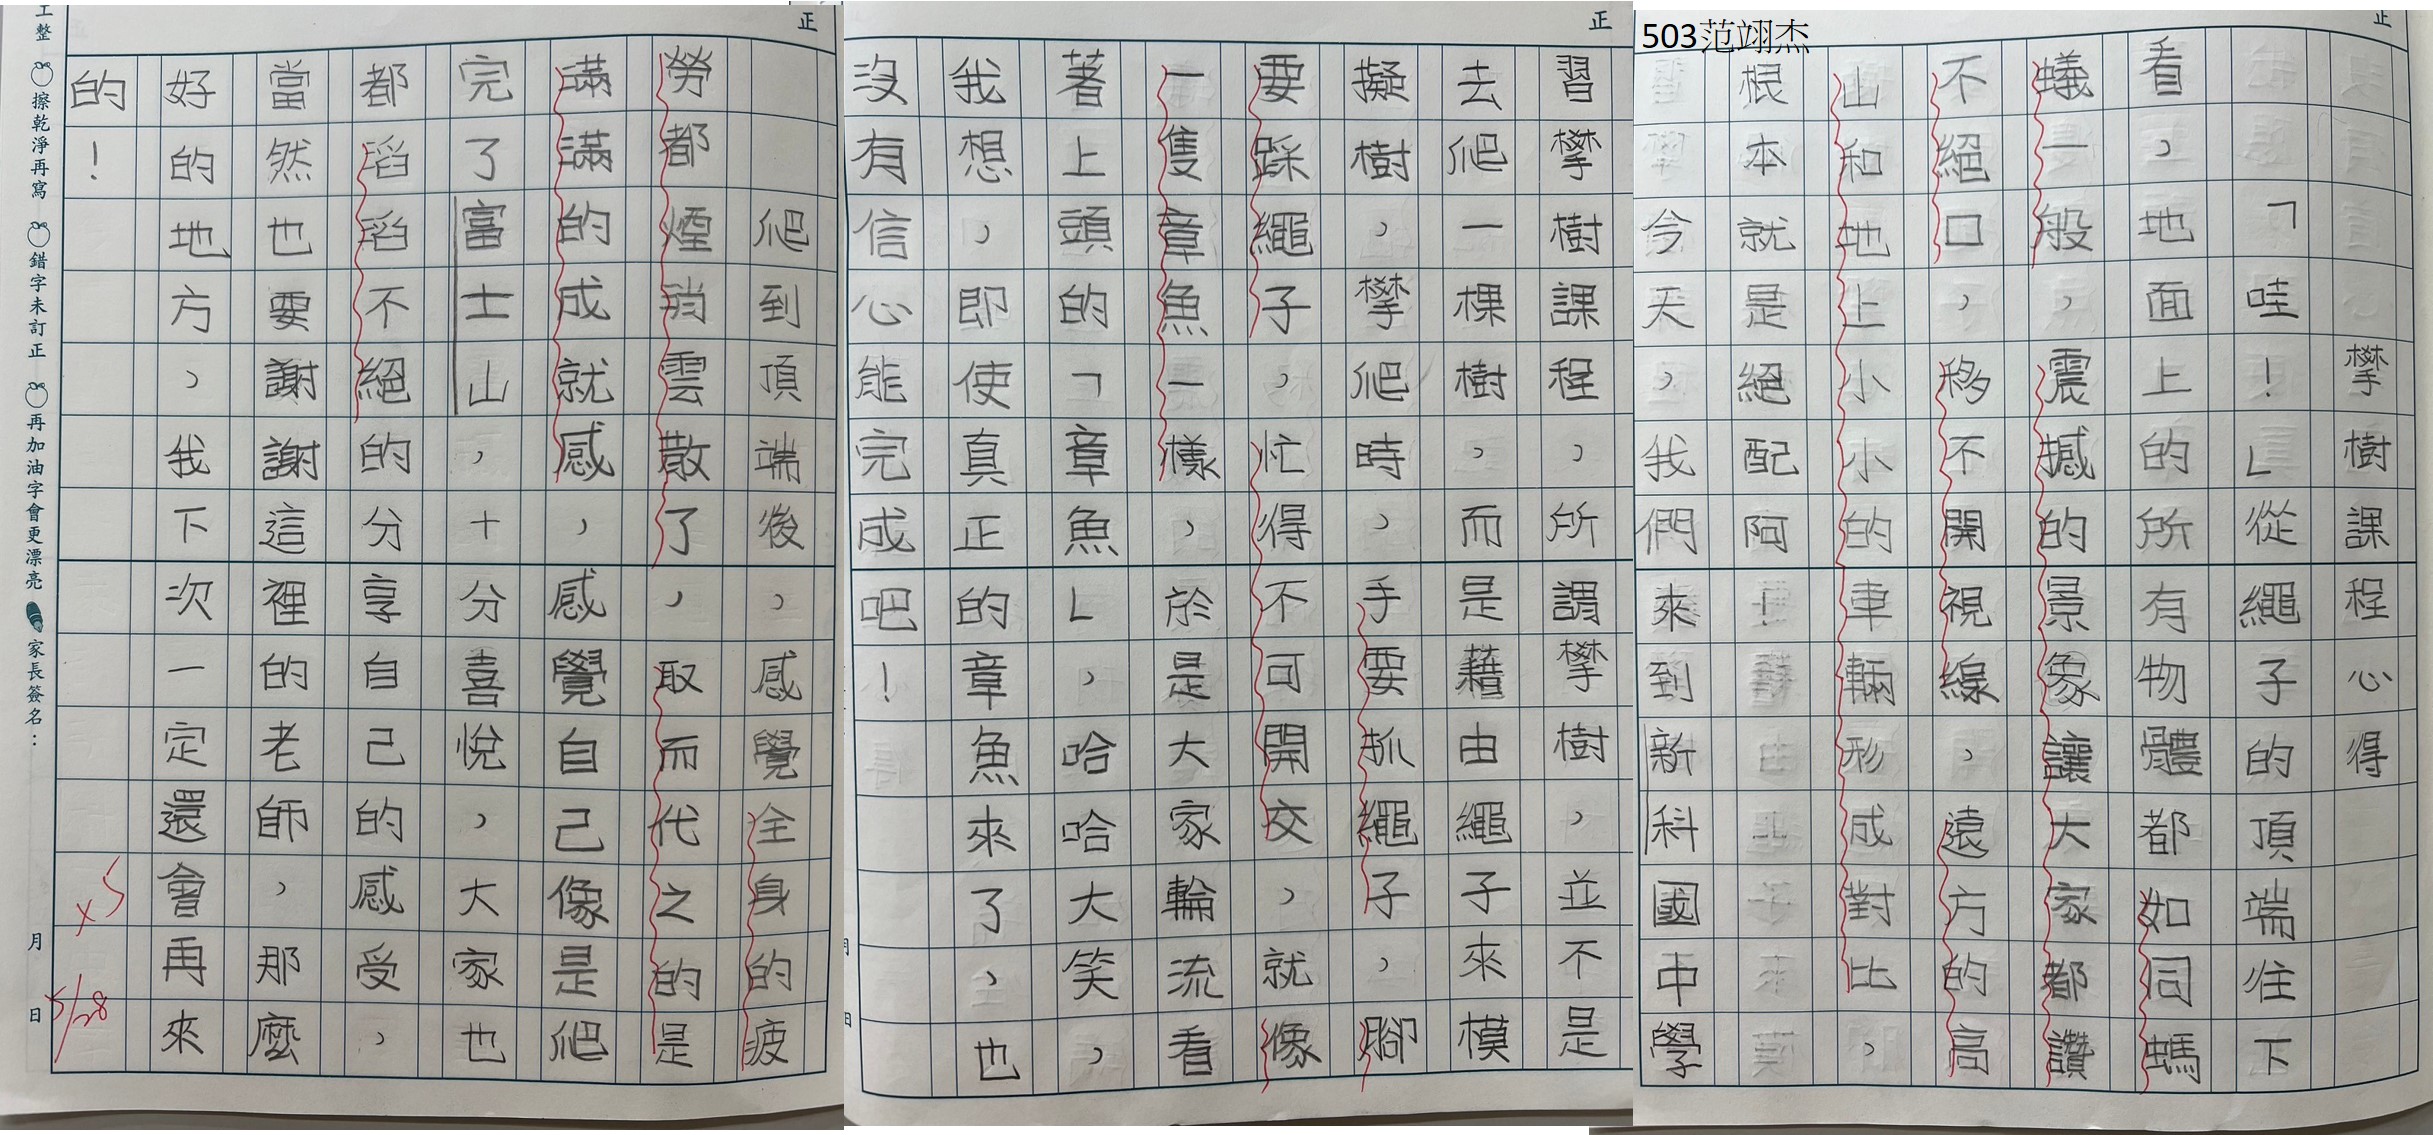 503范翊杰
正
攀樹課程心得
「哇！」從繩子的頂端往下
看，地面上的所有物體都如同螞
蟻一般，震撼的景象讓大家都讚
不絕口，移不開視線，遠方的高
山和地上小小的車輛形成對比，
根本就是絕配阿！
今天，我們來到新科國中學
正
習攀樹課程，所謂攀樹，並不是
去爬一棵樹，而是藉由繩子來模
擬樹，攀爬時，手要抓繩子，腳
要踩繩子，忙得不可開交，就像
一隻章魚一樣，於是大家輪流看
著上頭的「章魚」，哈哈大笑，
我想，即使真正的章魚來了，也
沒有信心能完成吧！
正
爬到頂端後，感覺全身的疲
勞都煙消雲散了，取而代之的是
滿滿的成就感，感覺自己像是爬
完了富士山，十分喜悅，大家也
都滔滔不絕的分享自己的感受，
當然也要謝謝這裡的老師，那麼
好的地方，我下次一定還會再來
的！
x5
5/28
工整 擦乾淨再寫 錯字未訂正 再加油字會更漂亮 家長簽名： 月 日